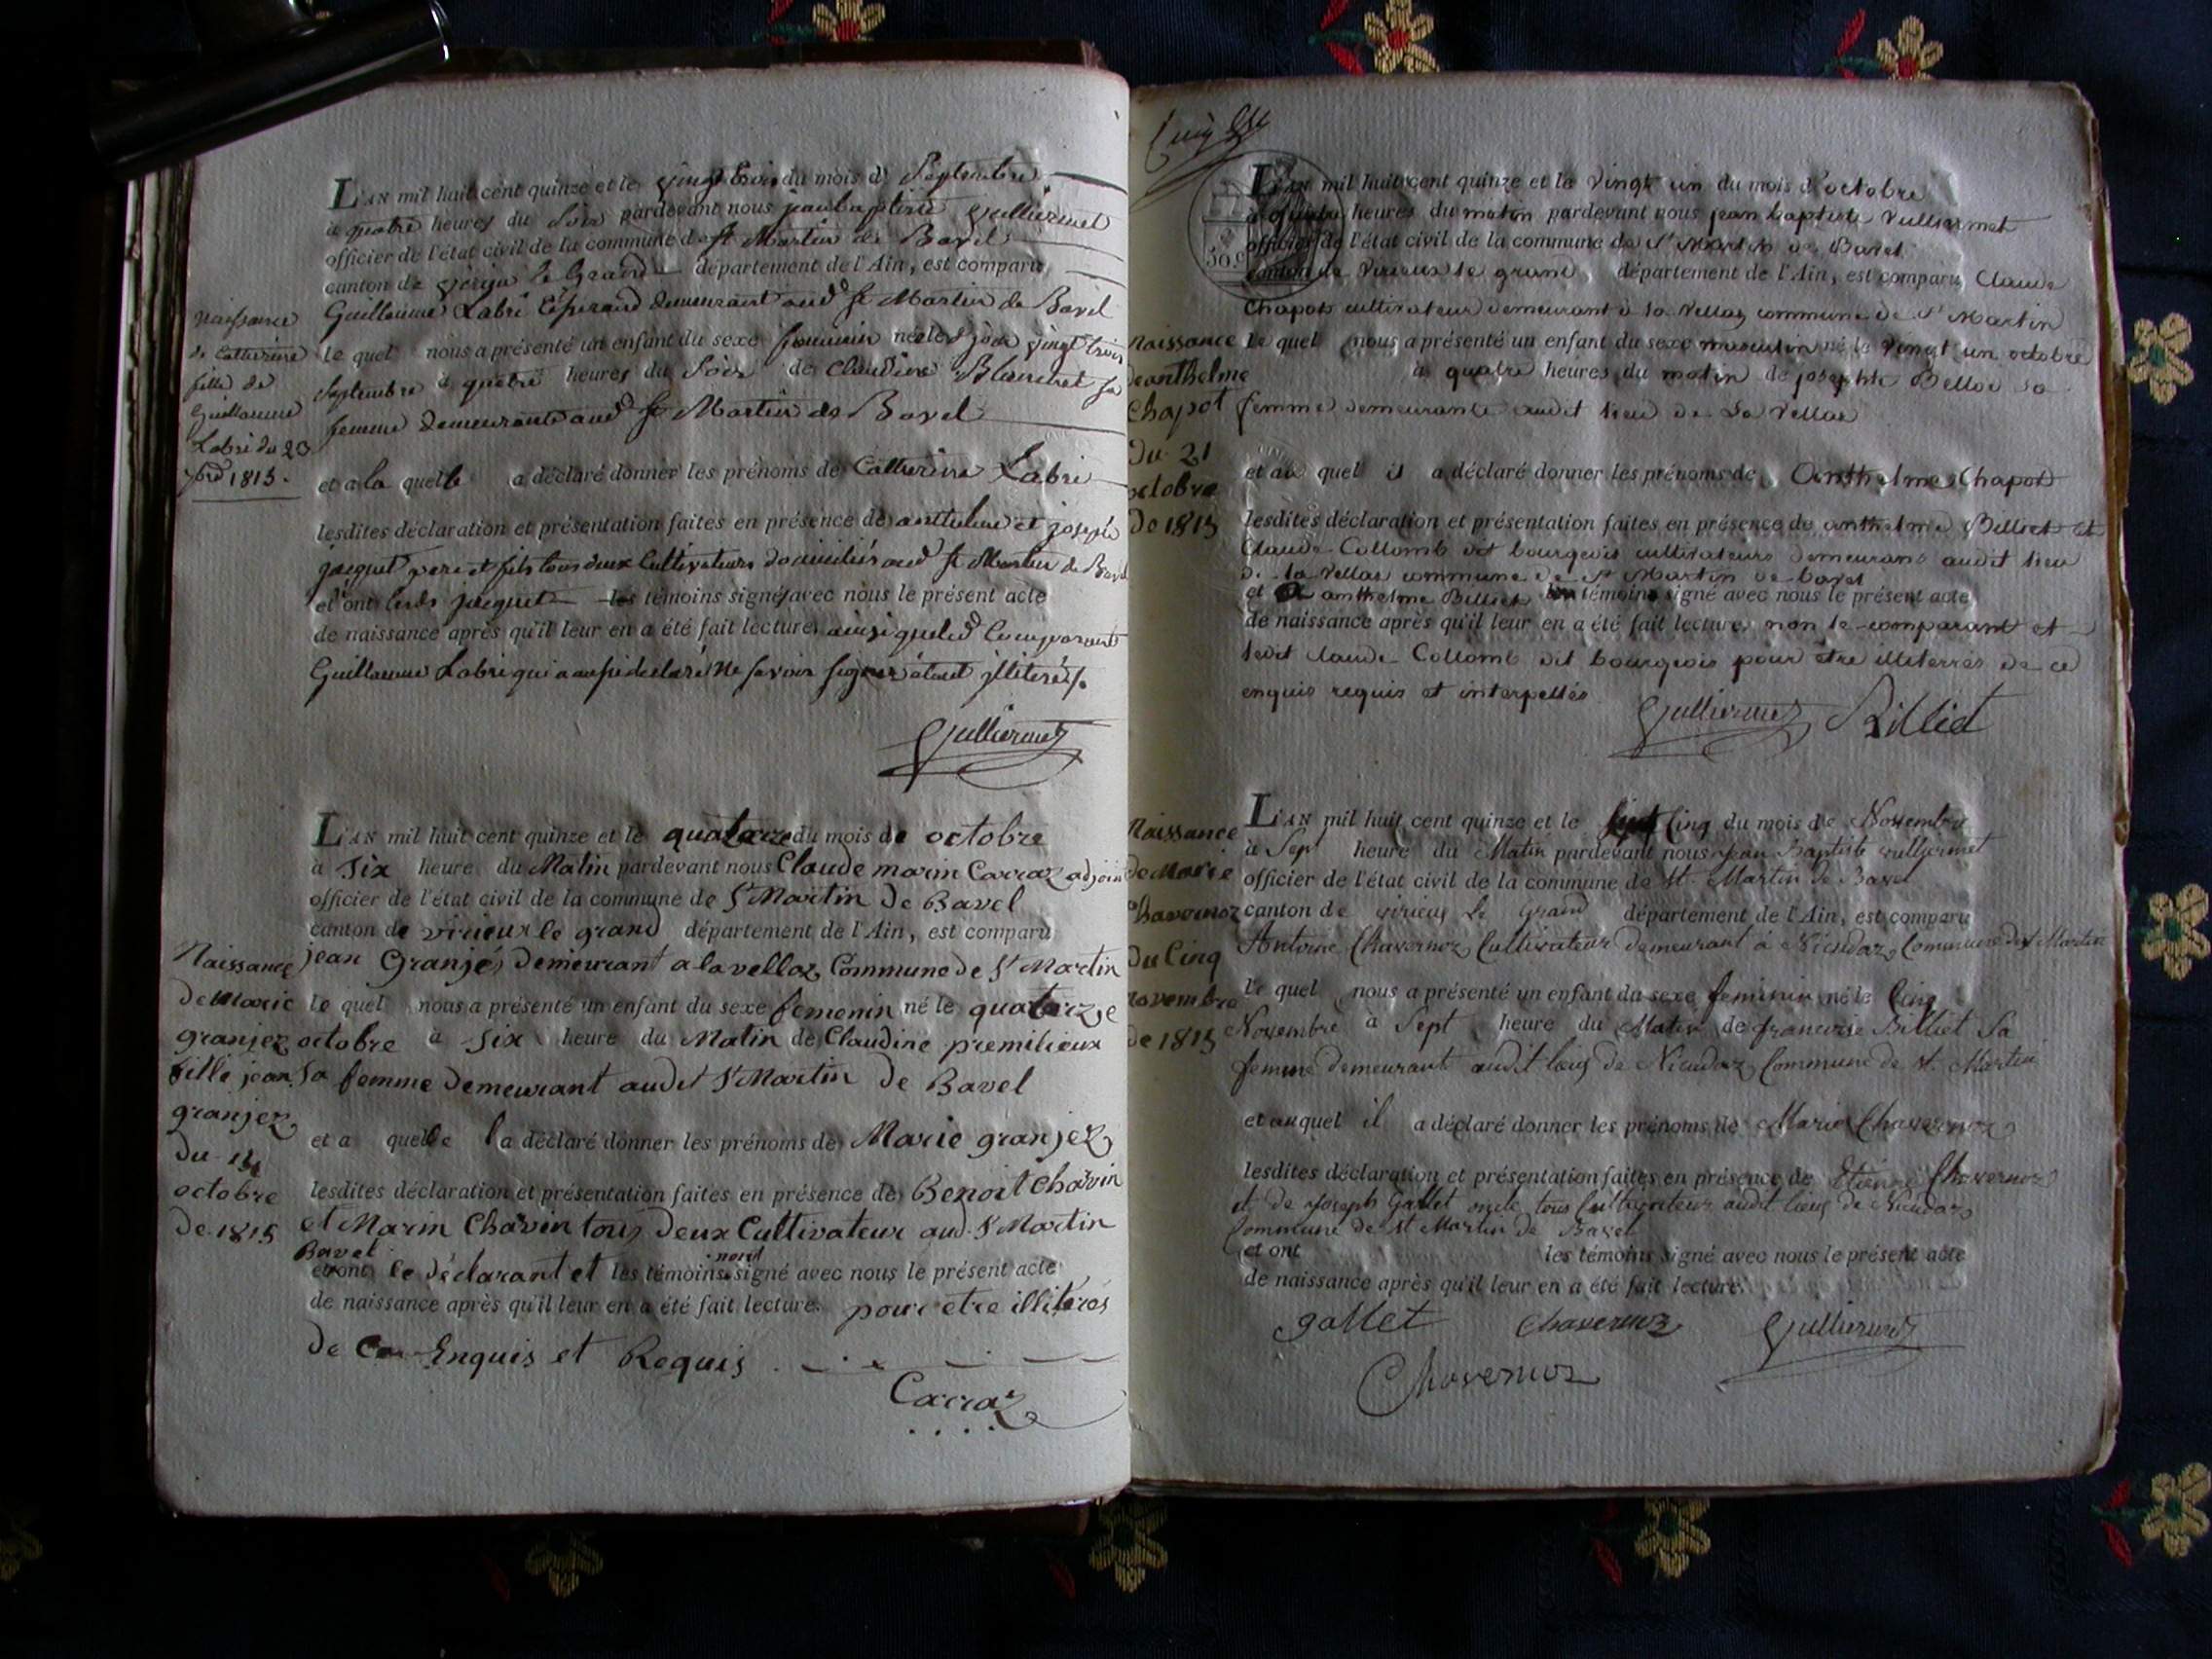 naissance
de Catherine
fille de
Guillaume
Labri du 23
7bre 1815.
L'AN mil huit cent quinze et le vingt trois du mois de Septembre
à quatre heures du Soir pardevant nous jean baptiste Vulliermet
officier de l'état civil de la commune de St Martin de Bavel
canton de virieu le Grand département de l'Ain, est comparu
Guillaume Labri demeurant aud St Martin de Bavel
le quel nous a présenté un enfant du sexe féminin née led jour vingt trois
Septembre à quatre heures du Soir de Claudine Blanchet sa
femme demeurante aud St Martin de Bavel
et a la quelle a déclaré donner les prénoms de Catherine Labri
lesdites déclaration et présentation faites en présence de anthelme et joseph
jacquet pere et fils tous deux Cultivateurs domiciliés aud St Martin de Bavel
et ont lesds jacquet les témoins signé avec nous le présent acte
de naissance après qu'il leur en a été fait lecture, ainsi que led Comparant
Guillaume Labri qui a aussi déclaré ne savoir signer étant illiteré
Vulliermet
Naissance
de Marie
granjez
fille jean
granjez
du 14
octobre
de 1815
L'AN mil huit cent quinze et le quatorze du mois de octobre
à Six heure du Matin pardevant nous Claude marin Carraz adjoin
officier de l'état civil de la commune de St Martin De Bavel
canton de virieux le grand département de l'Ain, est comparu
jean Granjés demeurant a lavellaz Commune de St Martin
le quel nous a présenté un enfant du sexe femenin né le quatorze
octobre à Six heure du Matin de Claudine premilieux
Sa femme demeurant audit St Martin de Bavel
et a quelle la déclaré donner les prénoms de Marie granjez
lesdites déclaration et présentation faites en présence de Benoit Chavin
et Marin Chavin tous deux Cultivateur aud. St Martin
Bavel
et ont le déclarant et les témoins nont signé avec nous le présent acte
de naissance après qu'il leur en a été fait lecture. pour etre illiterés
de Ce Enquis et Requis
Carraz
50.c
Naissance
de anthelme
Chapot
du 21
octobre
de 1815
L'AN mil huit cent quinze et le vingt un du mois d'octobre
heures du matin pardevant nous jean baptiste Vulliermet
officier de l'état civil de la commune de St Martin de Bavel
canton de Virieux le grand département de l'Ain, est comparu Claude
Chapot cultivateur demeurant à la Vellaz commune de St Martin
le quel nous a présenté un enfant du sexe masculin né le vingt un octobre
à quatre heures du matin de josephte Belloe sa
femme demeurante audit lieu de La Vellaz
et au quel il a déclaré donner les prénoms de Anthelme Chapot
lesdites déclaration et présentation faites en présence de anthelme Billiet et
Claude Collomb dit bourgeois cultivateurs demeurant audit lieu
de la Vellaz commune de St Martin de bavel
et anthelme Billiet témoins signé avec nous le présent acte
de naissance après qu'il leur en a été fait lecture, non le comparant et
ledit Claude Collomb dit bourgeois pour être illiterrés de ce
enquis requis et interpellés
Vulliermet Billiet
Naissance
de Marie
Chavernoz
du Cinq
novembre
de 1815
L'AN mil huit cent quinze et le Cinq du mois de Novembre
à Sept heure du Matin pardevant nous jean Baptiste vulliermet
officier de l'état civil de la commune de St. Martin de Bavel
canton de virieux Le Grand département de l'Ain, est comparu
Antoine Chavernoz Cultivateur demeurant à Niendaz Commune de St Martin
le quel nous a présenté un enfant du sexe feminin né le Cinq
Novembre à Sept heure du Matin de francoise Billiet Sa
femme demeurant audit lieu de Niendaz Commune de St. Martin
et auquel il a déclaré donner les prénoms de Marie Chavernoz
lesdites déclaration et présentation faites en présence de Etienne Chavernoz
et de Joseph Gallet oncle tous Cultivateur audit lieu de Niendaz
Commune de St Martin de Bavel
et ont les témoins signé avec nous le présent acte
de naissance après qu'il leur en a été fait lecture.
gallet Chavernoz Vulliermet
Chavernoz